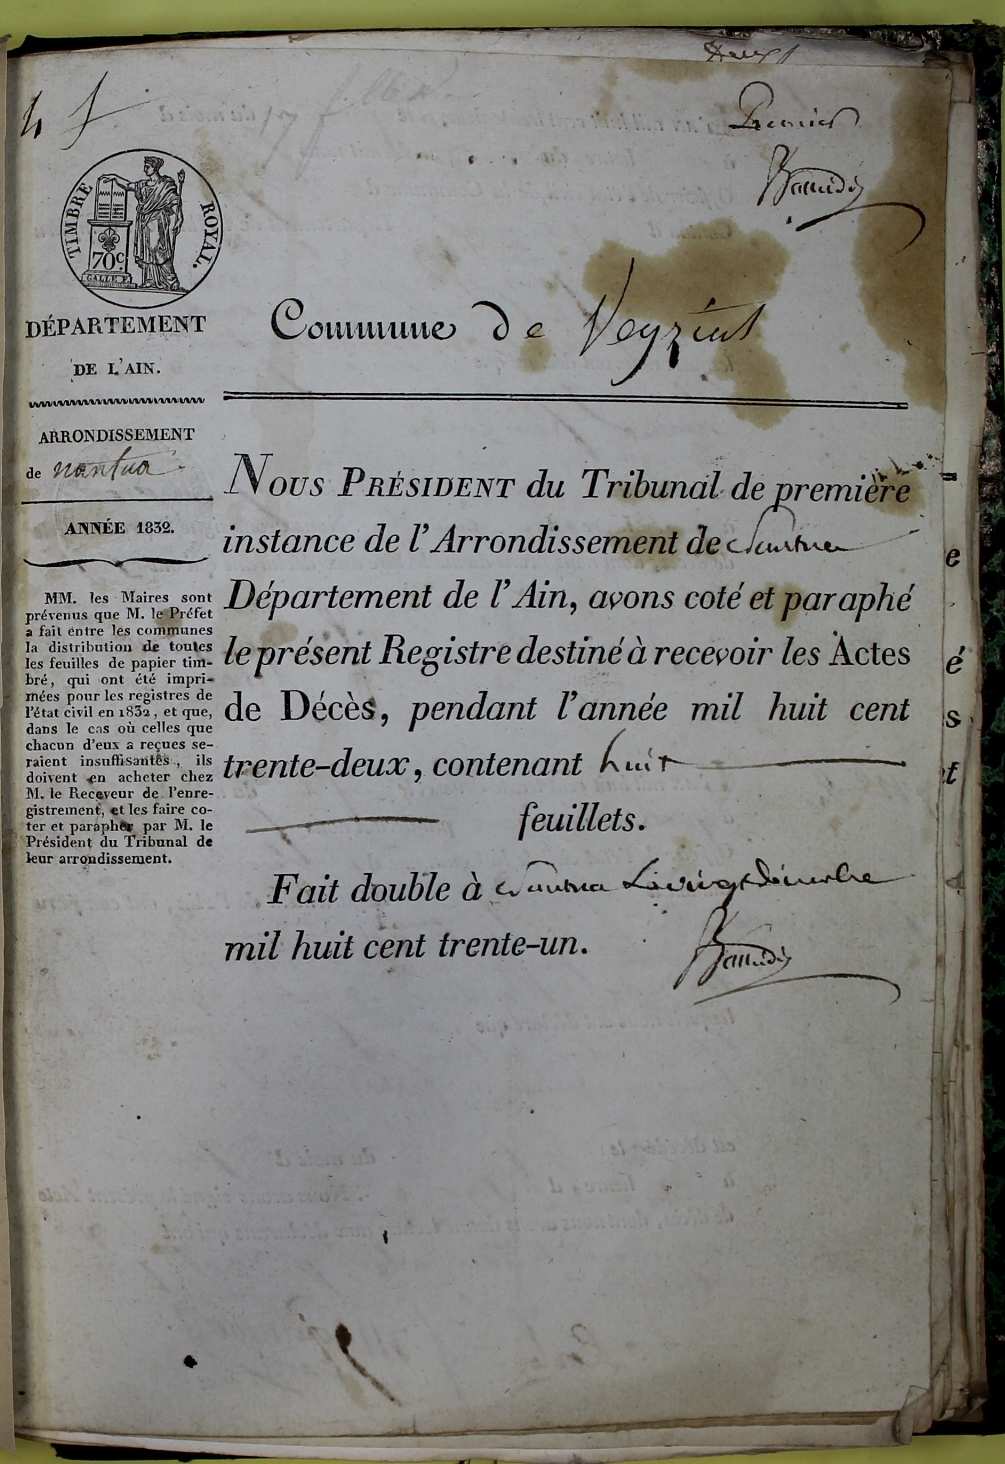 Premier
TIMBRE ROYAL.
70c
GALLE F.
DÉPARTEMENT
DE L'AIN.
ARRONDISSEMENT
de nantua
ANNÉE 1832.
MM. les Maires sont
prévenus que M. le Préfet
a fait entre les communes
la distribution de toutes
les feuilles de papier tim-
bré, qui ont été impri-
mées pour les registres de
l'état civil en 1832, et que,
dans le cas où celles que
chacun d'eux a reçues se-
raient insuffisantes, ils
doivent en acheter chez
M. le Receveur de l'enre-
gistrement, et les faire co-
ter et parapher par M. le
Président du Tribunal de
leur arrondissement.
Commune de Veyziat
NOUS PRÉSIDENT du Tribunal de première
instance de l'Arrondissement de Nantua
Département de l'Ain, avons coté et paraphé
le présent Registre destiné à recevoir les Actes
de Décès, pendant l'année mil huit cent
trente-deux, contenant huit
feuillets.
Fait double à Nantua Le vingt Décembre
mil huit cent trente-un.